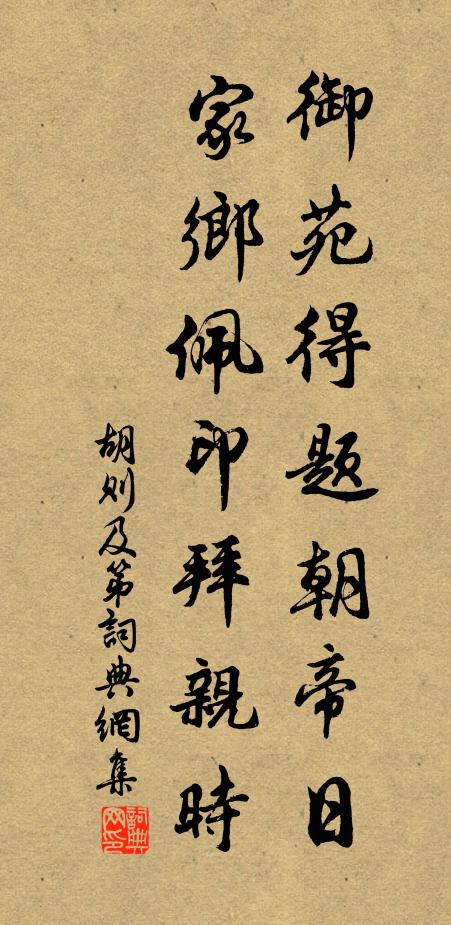 御苑得題朝帝日
家鄉佩印拜親時
胡則及第詞典網集
詞典网印